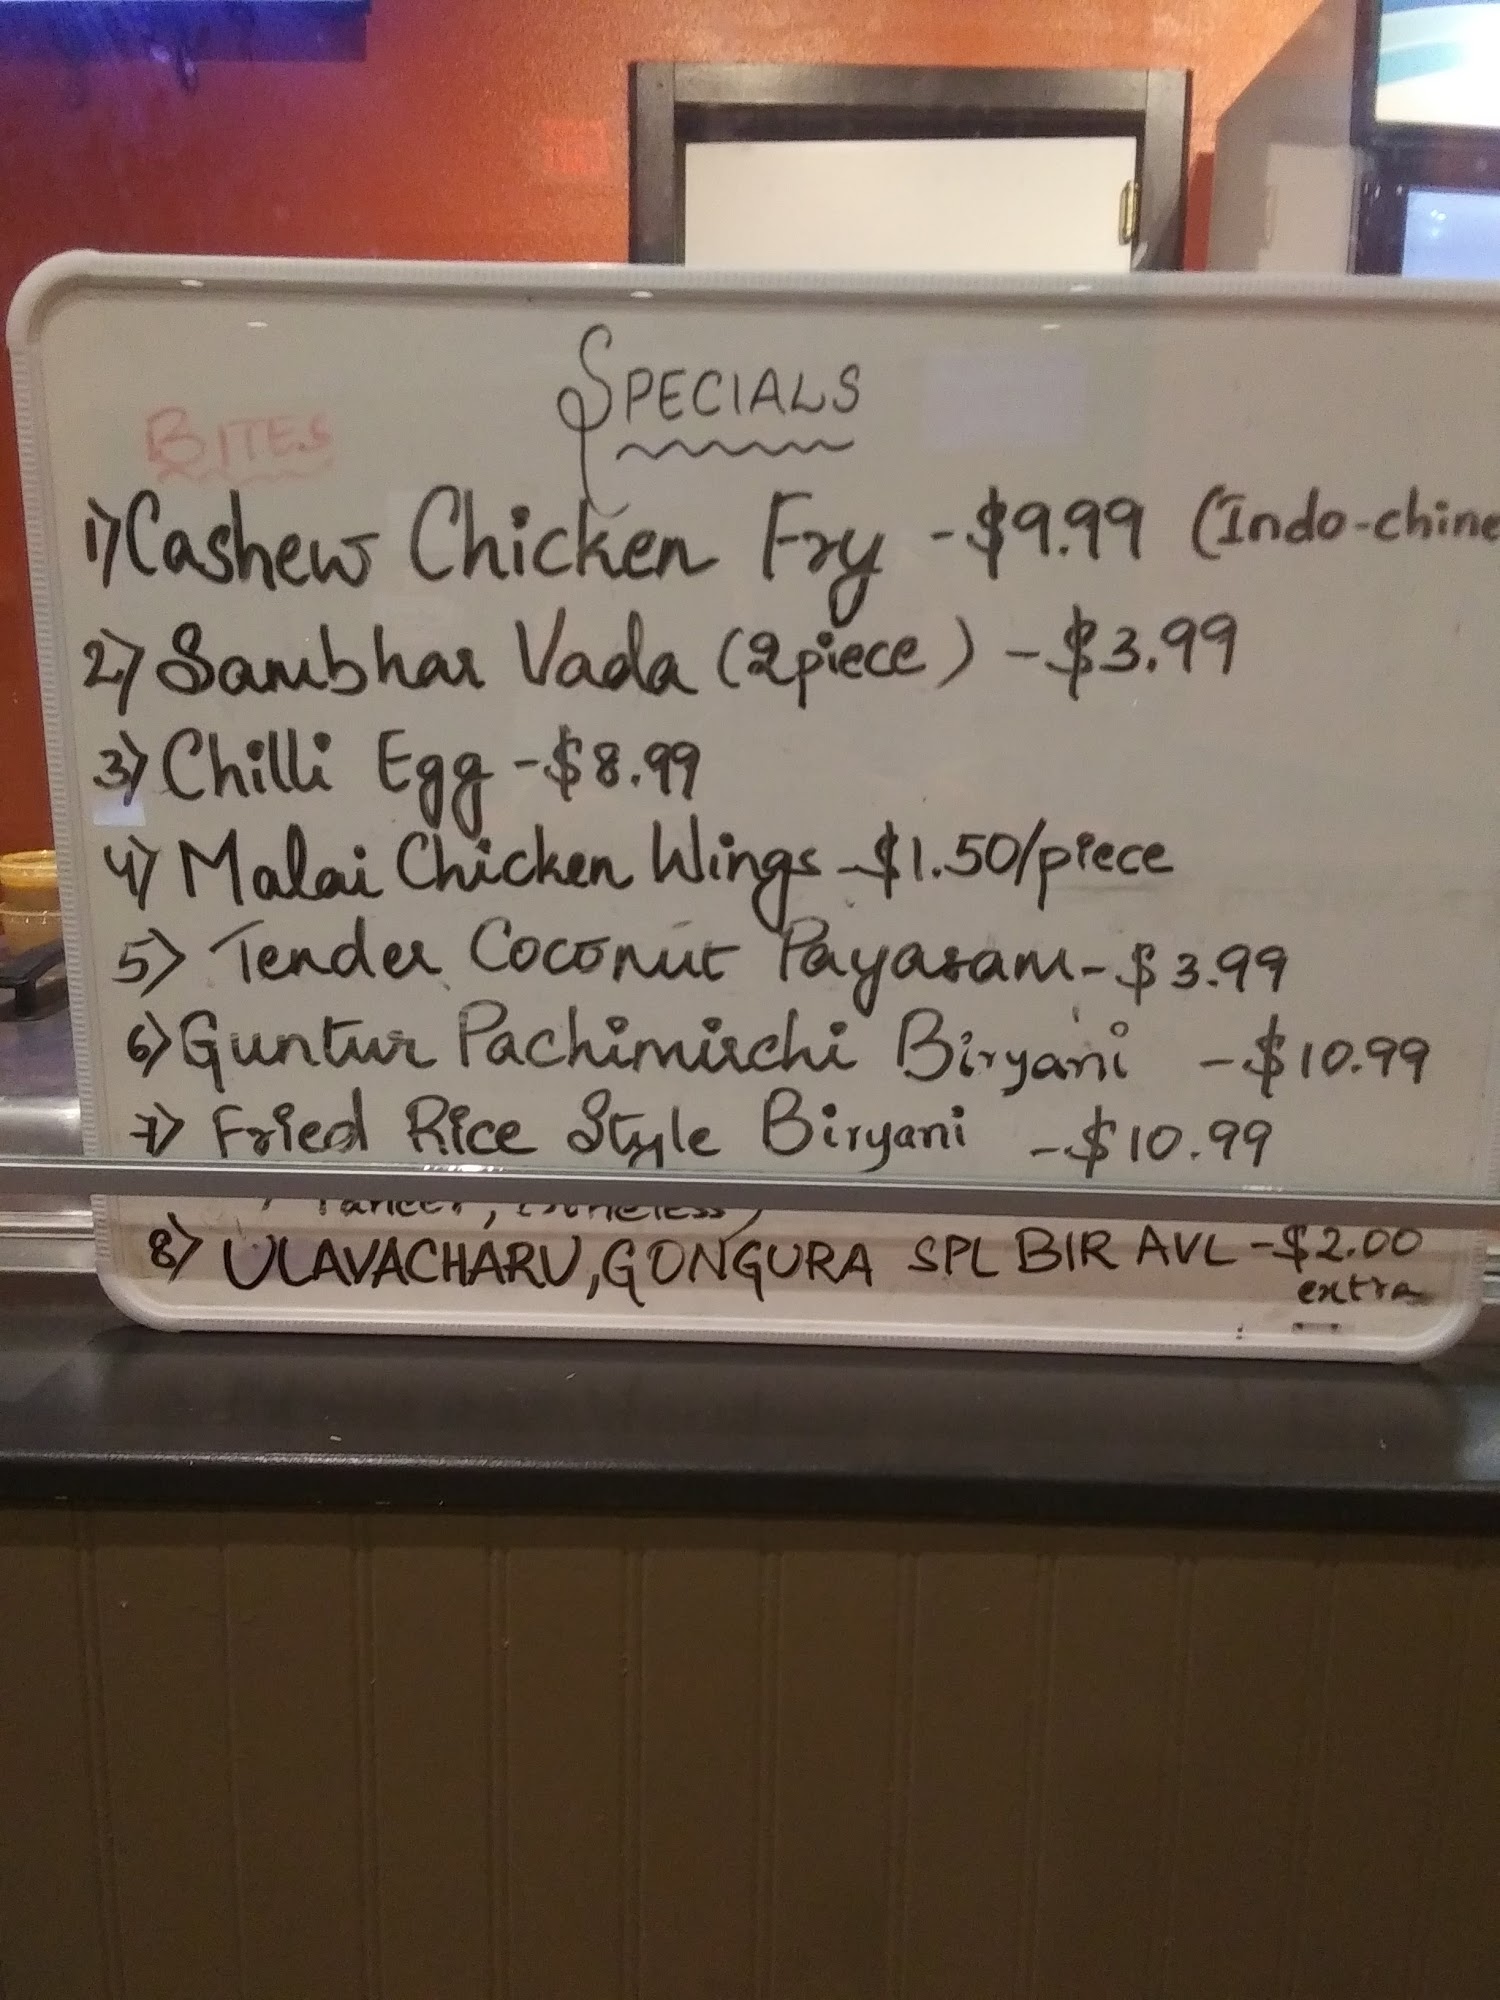 SPECIALS
BITES
1) Cashew Chicken Fry - $9.99 (Indo-chine
2) Sambhar Vada (2piece) - $3.99
3) Chilli Egg - $8.99
4) Malai Chicken Wings - $1.50/piece
5) Tender Coconut Payasam - $3.99
6) Guntur Pachimirchi Biryani - $10.99
7) Fried Rice Style Biryani - $10.99
8) ULAVACHARU, GONGURA SPL BIR AVL - $2.00
extra